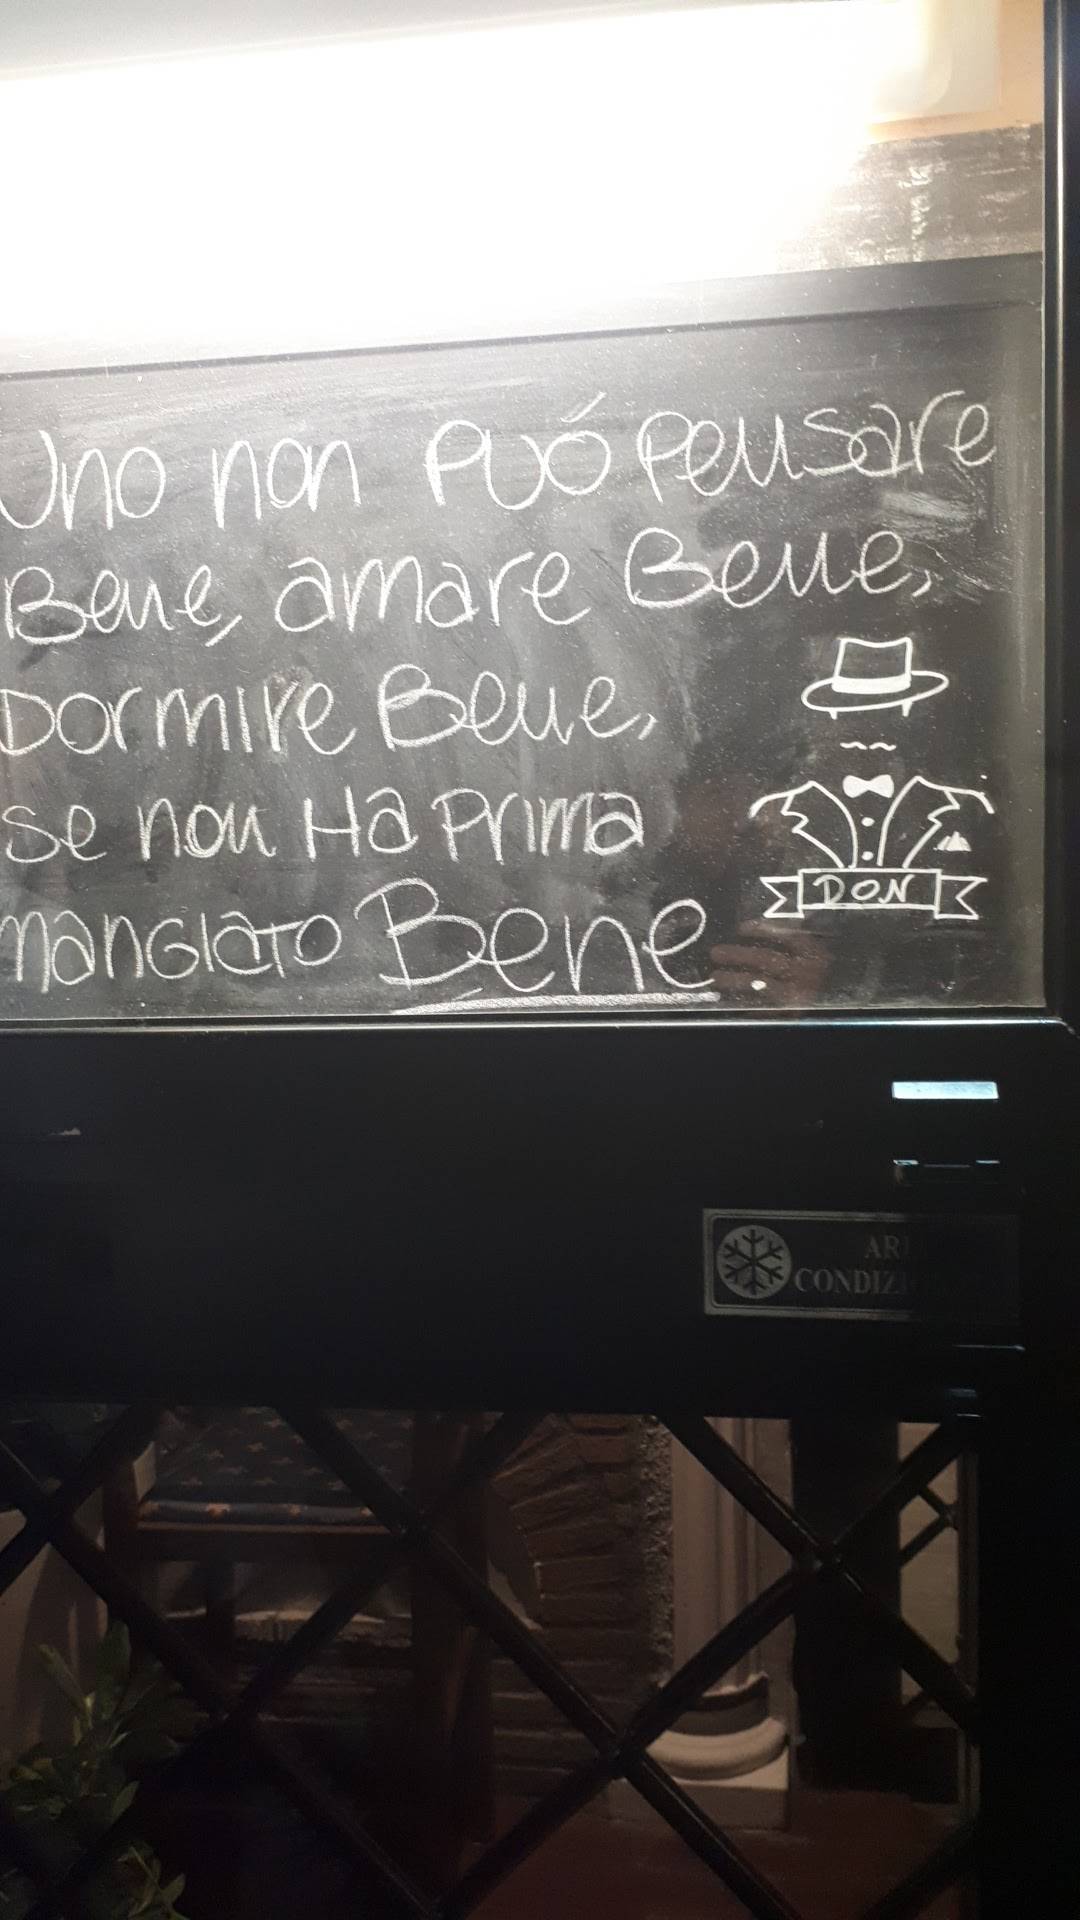 Uno non Puó Pensare
Bene, amare Bene,
Dormire Bene,
se non Ha Prima
manGiaTo Bene.
DON